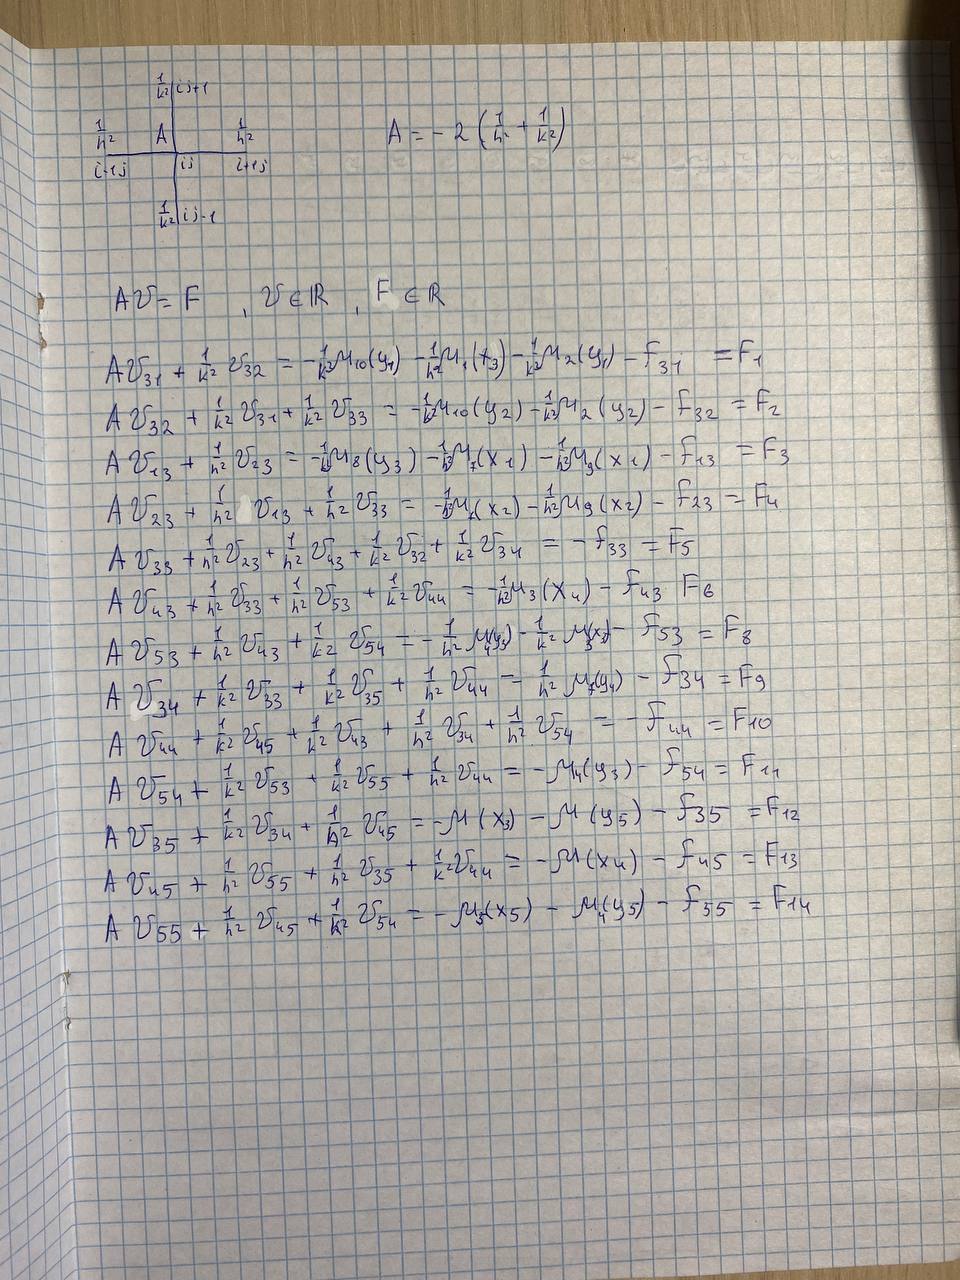 1/k² ij+1
1/h² A 1/h² A = -2 (1/h² + 1/k²)
i-1j ij i+1j
1/k² ij-1
Aυ = F , υ ∈ ℝ , F ∈ ℝ
Aυ₃₁ + 1/k² υ₃₂ = -1/k² μ₁₀(y₁) - 1/h² μ₁(x₃) - 1/k² μ₂(y₁) - f₃₁ = F₁
Aυ₃₂ + 1/k² υ₃₁ + 1/k² υ₃₃ = - μ₁₀(y₂) - 1/k² μ₂(y₂) - f₃₂ = F₂
Aυ₁₃ + 1/h² υ₂₃ = - μ₈(y₃) - μ₇(x₁) - μ₉(x₁) - f₁₃ = F₃
Aυ₂₃ + 1/h² υ₁₃ + 1/h² υ₃₃ = - (x₂) - 1/h² μ₉(x₂) - f₂₃ = F₄
Aυ₃₃ + 1/h² υ₂₃ + 1/h² υ₄₃ + 1/k² υ₃₂ + 1/k² υ₃₄ = - f₃₃ = F₅
Aυ₄₃ + 1/h² υ₃₃ + 1/h² υ₅₃ + 1/k² υ₄₄ = - 1/h² μ₃(x₄) - f₄₃ F₆
Aυ₅₃ + 1/h² υ₄₃ + 1/k² υ₅₄ = - 1/h² μ₄(y₃) - 1/k² μ₃(x₅) - f₅₃ = F₈
Aυ₃₄ + 1/k² υ₃₃ + 1/k² υ₃₅ + 1/h² υ₄₄ = 1/h² (y₄) - f₃₄ = F₉
Aυ₄₄ + 1/k² υ₄₅ + 1/k² υ₄₃ + 1/h² υ₃₄ + 1/h² υ₅₄ = - f₄₄ = F₁₀
Aυ₅₄ + 1/k² υ₅₃ + 1/k² υ₅₅ + 1/h² υ₄₄ = - μ₄(y₃) - f₅₄ = F₁₁
Aυ₃₅ + 1/k² υ₃₄ + 1/h² υ₄₅ = - μ(x₃) - μ(y₅) - f₃₅ = F₁₂
Aυ₄₅ + 1/h² υ₅₅ + 1/h² υ₃₅ + 1/k² υ₄₄ = - μ(x₄) - f₄₅ = F₁₃
Aυ₅₅ + 1/h² υ₄₅ + 1/k² υ₅₄ = - μ₅(x₅) - μ₄(y₅) - f₅₅ = F₁₄